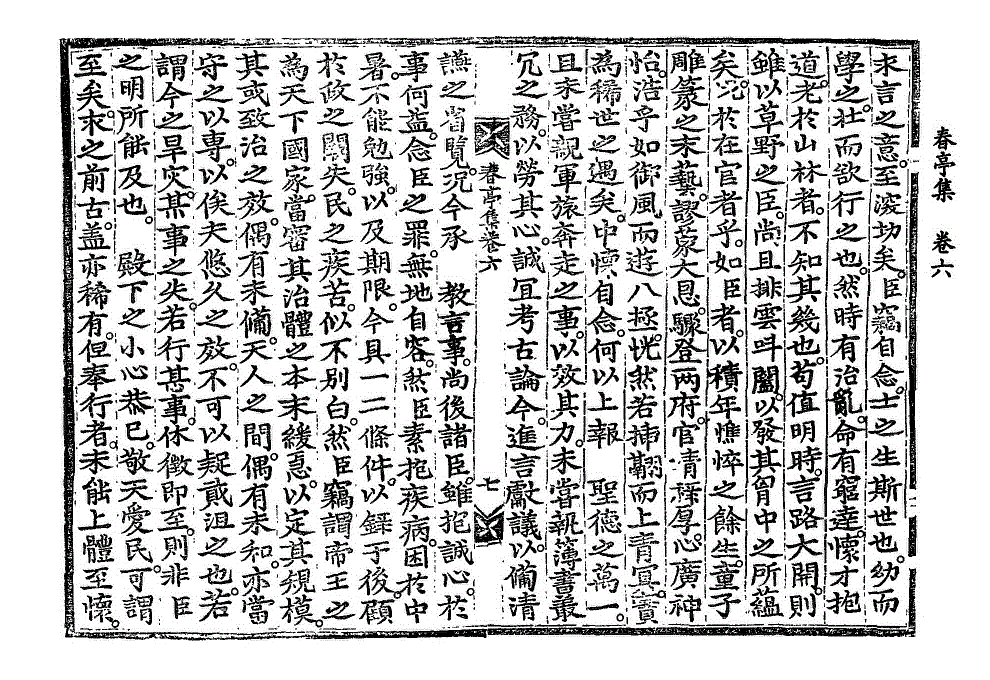 春亭集 卷六
求言之意至深切矣。臣竊自念。士之生斯世也。幼而
學之。壯而欲行之也。然時有治亂。命有窮達。懷才抱
道。老於山林者。不知其幾也。苟值明時。言路大開。則
雖以草野之臣。尚且排雲叫闔。以發其胷中之所蘊
矣。况於在官者乎。如臣者。以積年憔悴之餘生。童子
雕篆之末藝。謬蒙大恩。驟登兩府。官淸祿厚。心廣神
怡。浩乎如御風而遊八極。恍然若揷翮而上靑冥。實
爲稀世之遇矣。中懷自念。何以上報 聖德之萬一。
且未嘗親軍旅奔走之事。以效其力。未嘗執簿書叢
冗之務。以勞其心。誠宜考古論今。進言獻議。以備淸
春亭集卷六 七
讌之省覽。况今承 敎言事。尚後諸臣。雖抱誠心。於
事何益。念臣之罪。無地自容。然臣素抱疾病。困於中
暑。不能勉強。以及期限。今具一二條件。以錄于後。顧
於政之闕失。民之疾苦。似不別白。然臣竊謂帝王之
爲天下國家。當審其治體之本末緩急。以定其規模。
其或致治之效。偶有未備。天人之間。偶有未和。亦當
守之以專。以俟夫悠久之效。不可以疑貳沮之也。若
謂今之旱灾。某事之失。若行甚事。休徵卽至。則非臣
之明所能及也。 殿下之小心恭已。敬天愛民。可謂
至矣。求之前古。盖亦稀有。但奉行者。未能上體至懷。